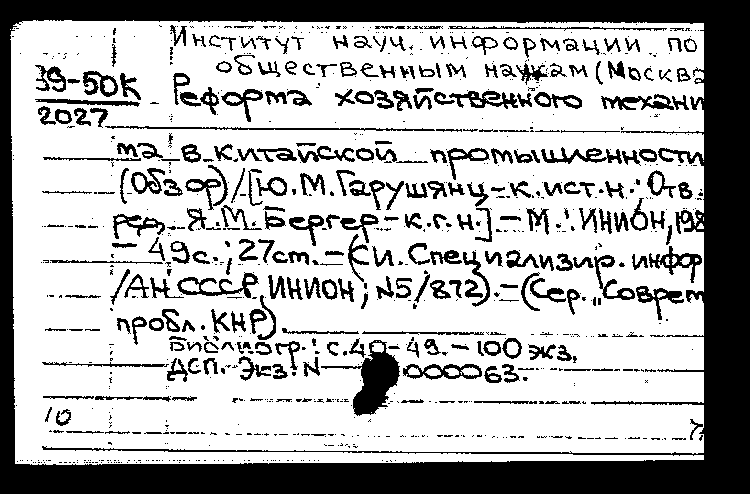 Институт науч. информации по
общественным наукам (Москва
39-50К Реформа хозяйственного механи
2027
ма в китайской промышленности
(Обзор) / [Ю.М. Гарушянц - к.ист.н.; Отв.
ред. Я.М. Бергер - к.г.н.] - М.: ИНИОН, 198
- 49 с.; 27 см. - (Си. Специализир. инфор
/ АН СССР, ИНИОН; N5/872). - (Сер. "Соврем
пробл. КНР).
Библиогр.: с. 40-49. - 100 экз.
ДСП. Экз. N 000063.
10